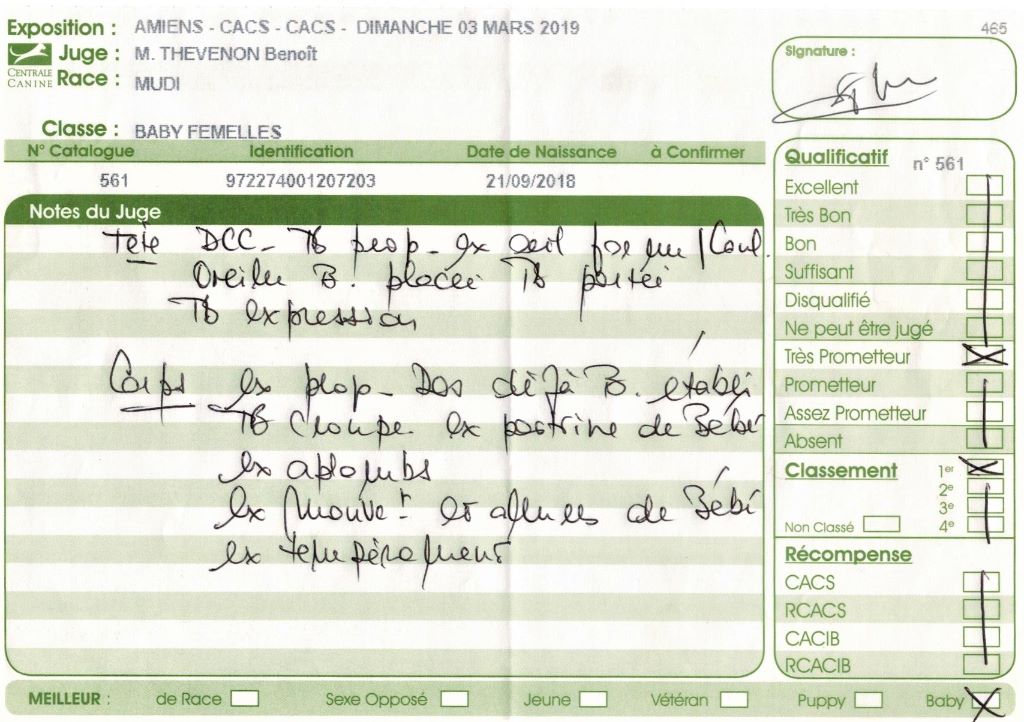 Exposition : AMIENS - CACS - CACS - DIMANCHE 03 MARS 2019
465
CENTRALE CANINE
Juge : M. THEVENON Benoît
Race : MUDI
Signature :
Classe : BABY FEMELLES
N° Catalogue Identification Date de Naissance à Confirmer
561 972274001207203 21/09/2018
Notes du Juge
Tête DCC - TB prop - ex oeil forme / Coul.
Oreille B. placée TB portée
TB expression
Corps ex prop - Dos déjà B. établi
TB Croupe ex poitrine de Bébé
ex aplombs
ex Mouvet et allures de Bébé
ex tempérament
Qualificatif n° 561
Excellent
Très Bon
Bon
Suffisant
Disqualifié
Ne peut être jugé
Très Prometteur
Prometteur
Assez Prometteur
Absent
Classement 1er
2e
3e
Non Classé 4e
Récompense
CACS
RCACS
CACIB
RCACIB
MEILLEUR : de Race Sexe Opposé Jeune Vétéran Puppy Baby